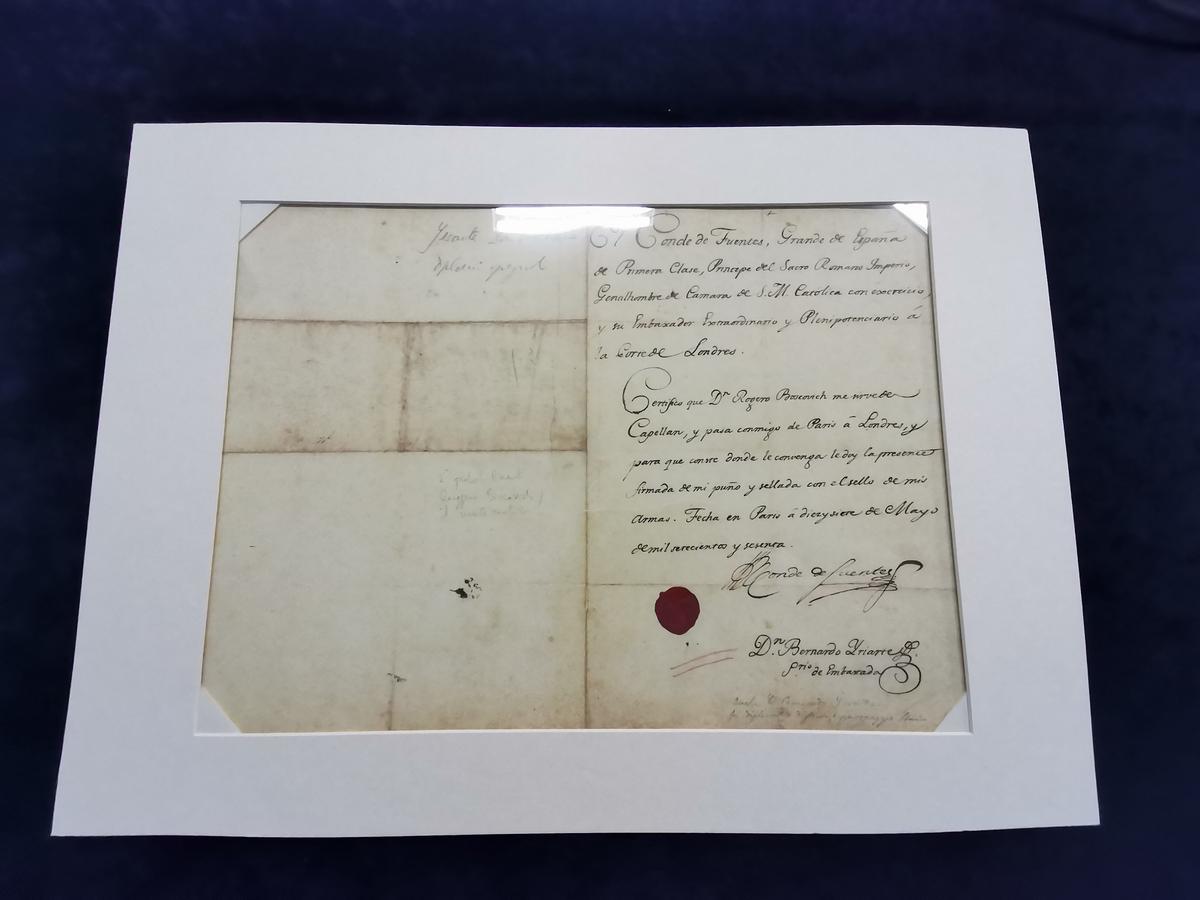 El Conde de Fuentes, Grande de España
de Primera Clase, Principe del Sacro Romano Imperio,
Gentilhombre de Camara de S. M. Catolica con exercicio,
y su Embaxador Extraordinario y Plenipotenciario á
la Corte de Londres.
Certifico que Dn. Rogero Boscovich me sirve de
Capellan, y pasa conmigo de Paris á Londres, y
para que conste donde le convenga le doy la presente
firmada de mi puño y sellada con el sello de mis
Armas. Fecha en Paris á diez y siete de Mayo
de mil setecientos y sesenta.
El Conde de Fuentes
Dn. Bernardo Yriarte
Srio. de Embaxada